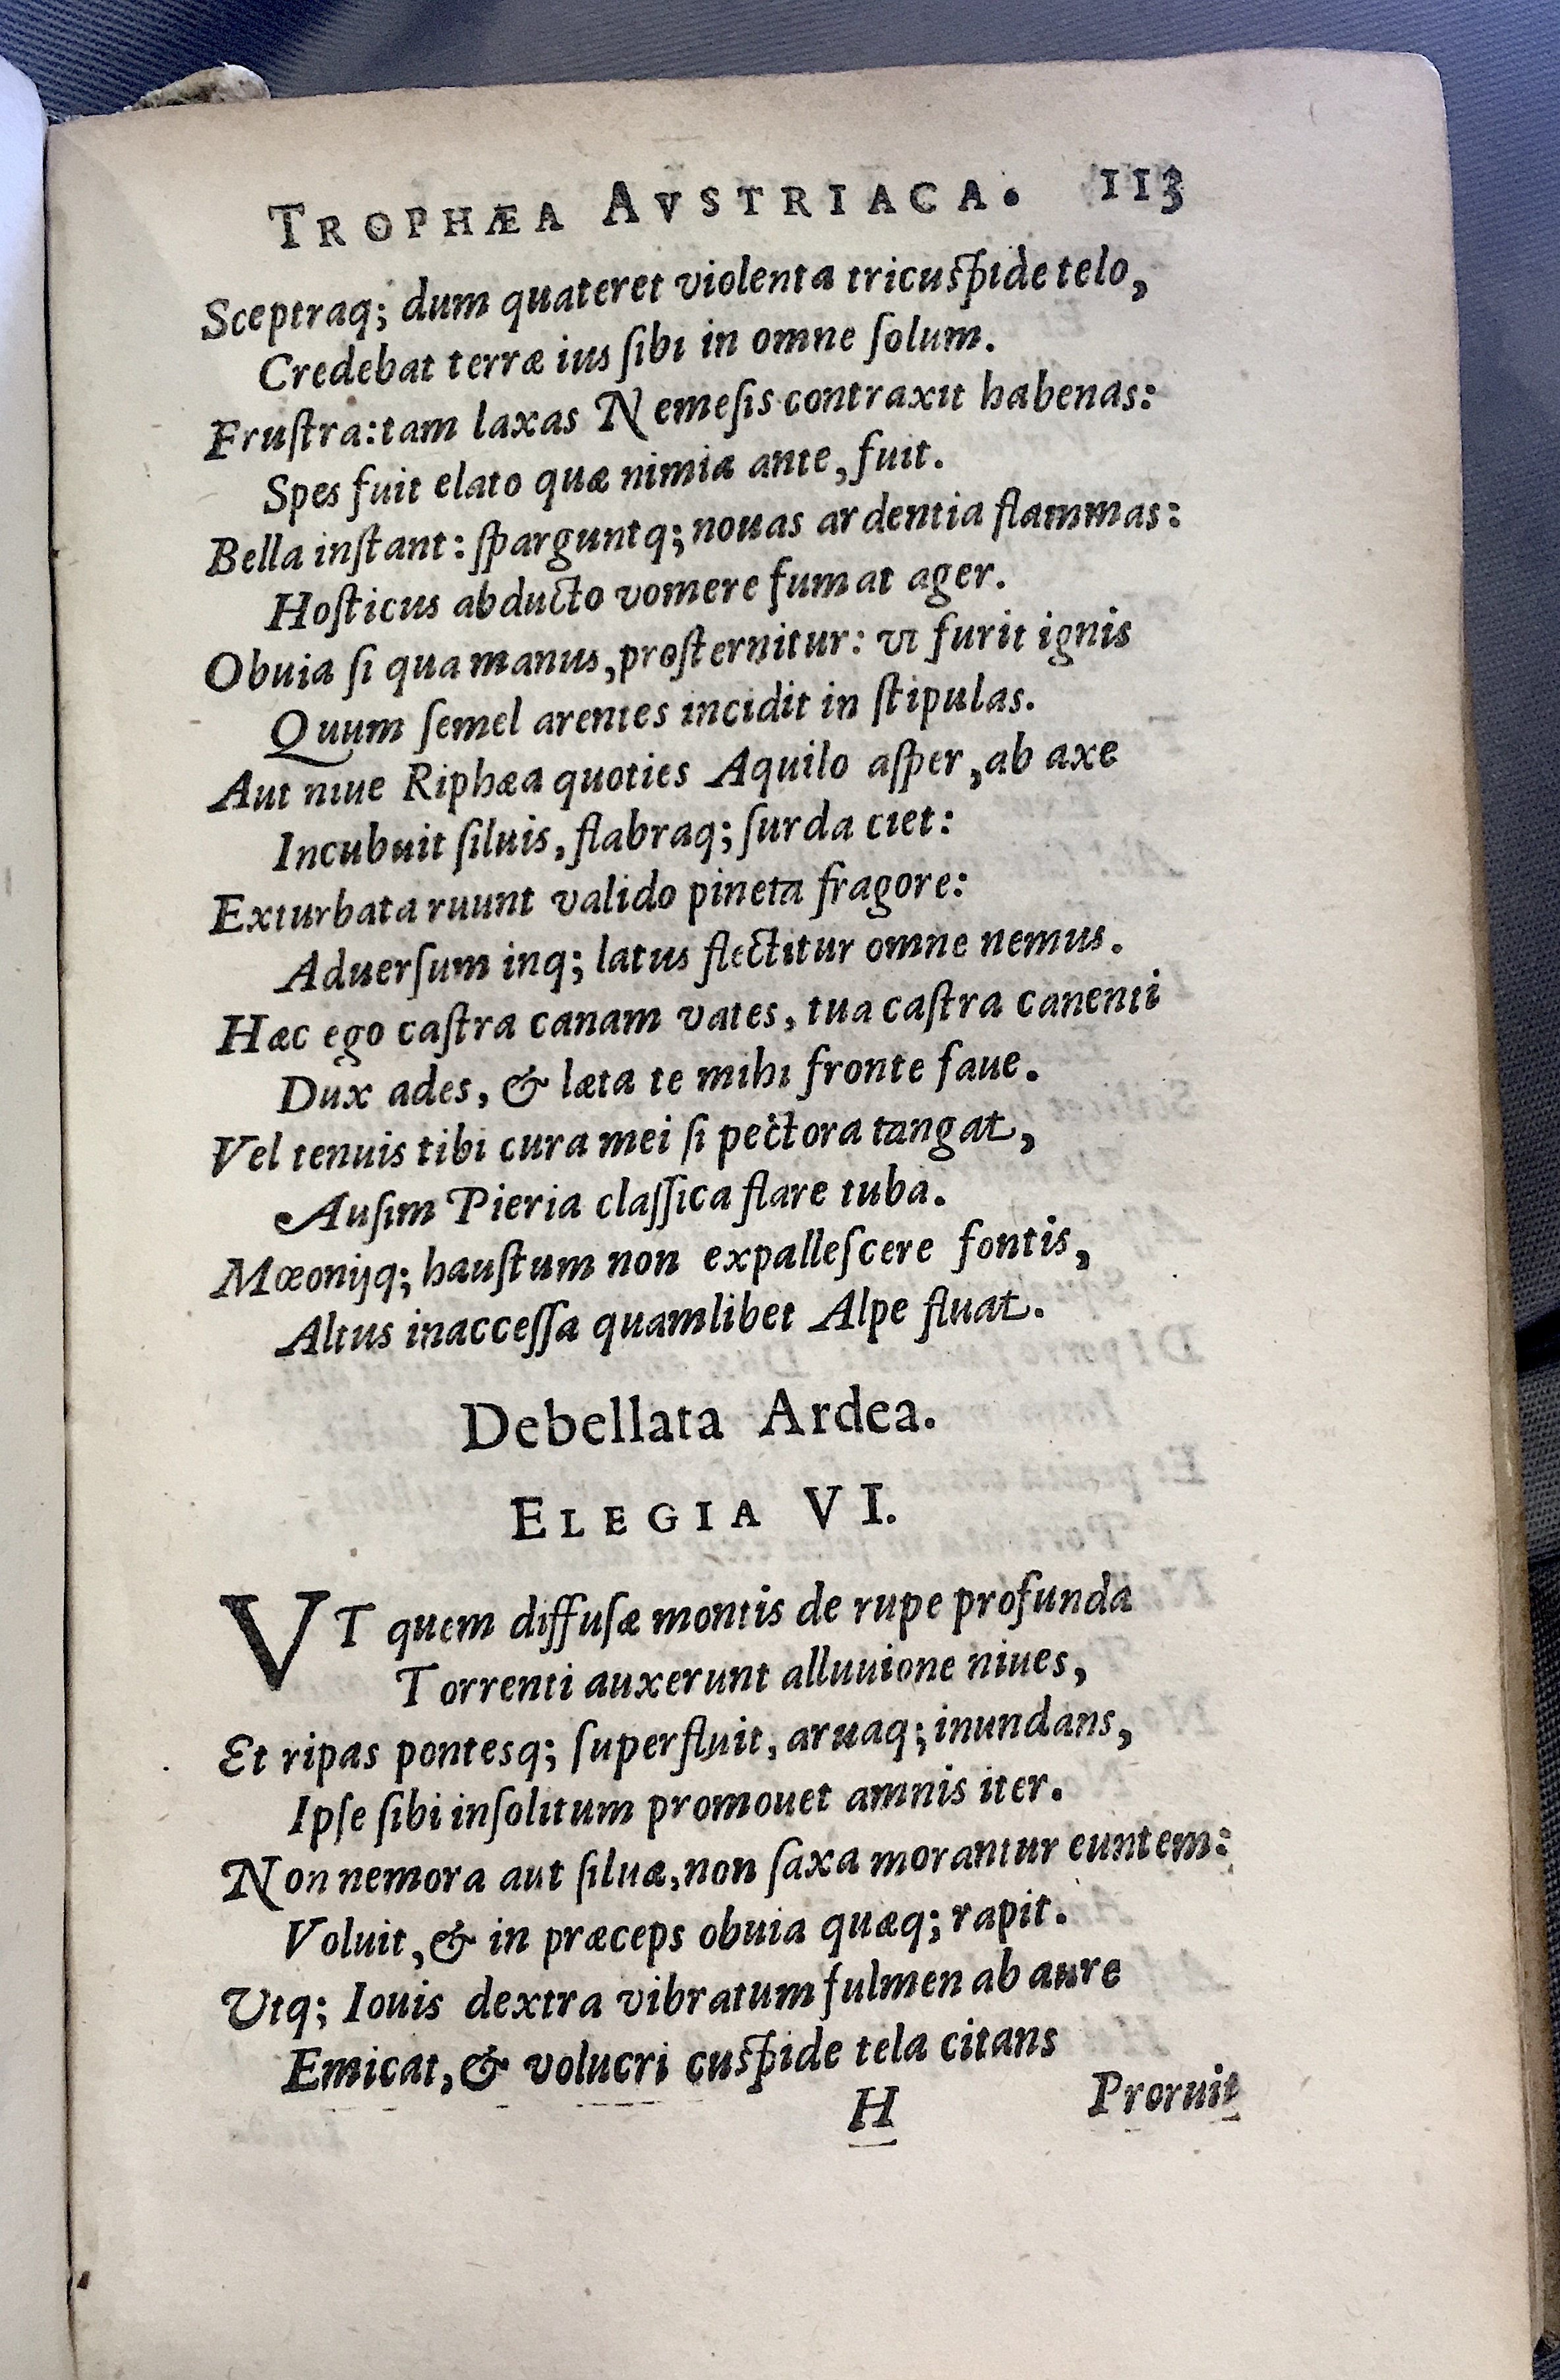 TROPHÆA AVSTRIACA. 113
Sceptraq; dum quateret violenta tricuſpide telo,
Credebat terræ ius ſibi in omne ſolum.
Fruſtra: tam laxas Nemeſis contraxit habenas:
Spes fuit elato quæ nimia ante, fuit.
Bella inſtant: ſparguntq; nouas ardentia flammas:
Hoſticus abducto vomere fumat ager.
Obuia ſi qua manus, proſternitur: vt furit ignis
Quum ſemel arentes incidit in ſtipulas.
Aut niue Riphæa quoties Aquilo aſper, ab axe
Incubuit ſiluis, flabraq; ſurda ciet:
Exturbata ruunt valido pineta fragore:
Aduerſum inq; latus flectitur omne nemus.
Hæc ego caſtra canam vates, tua caſtra canenti
Dux ades, & læta te mihi fronte faue.
Vel tenuis tibi cura mei ſi pectora tangat,
Auſim Pieria claſſica flare tuba.
Mœonijq; hauſtum non expalleſcere fontis,
Altus inacceſſa quamlibet Alpe fluat.
Debellata Ardea.
ELEGIA VI.
VT quem diffuſæ montis de rupe profunda
Torrenti auxerunt alluuione niues,
Et ripas pontesq; ſuperfluit, aruaq; inundans,
Ipſe ſibi inſolitum promouet amnis iter.
Non nemora aut ſiluæ, non ſaxa morantur euntem:
Voluit, & in præceps obuia quæq; rapit.
Vtq; Iouis dextra vibratum fulmen ab aure
Emicat, & volucri cuſpide tela citans
H Proruit